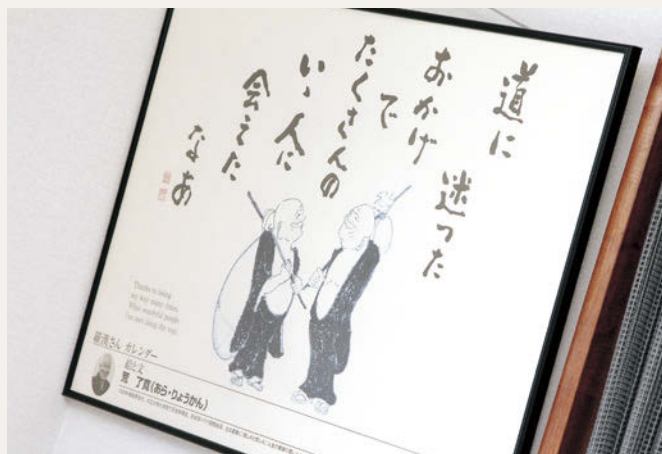 道に迷った
おかげで
たくさんの
いゝ人に
会えた
なあ
Thanks to losing
my way many times,
What wonderful people
I've met along the way.
羅漢さん カレンダー
絵と文
荒 了寛(あら・りょうかん)